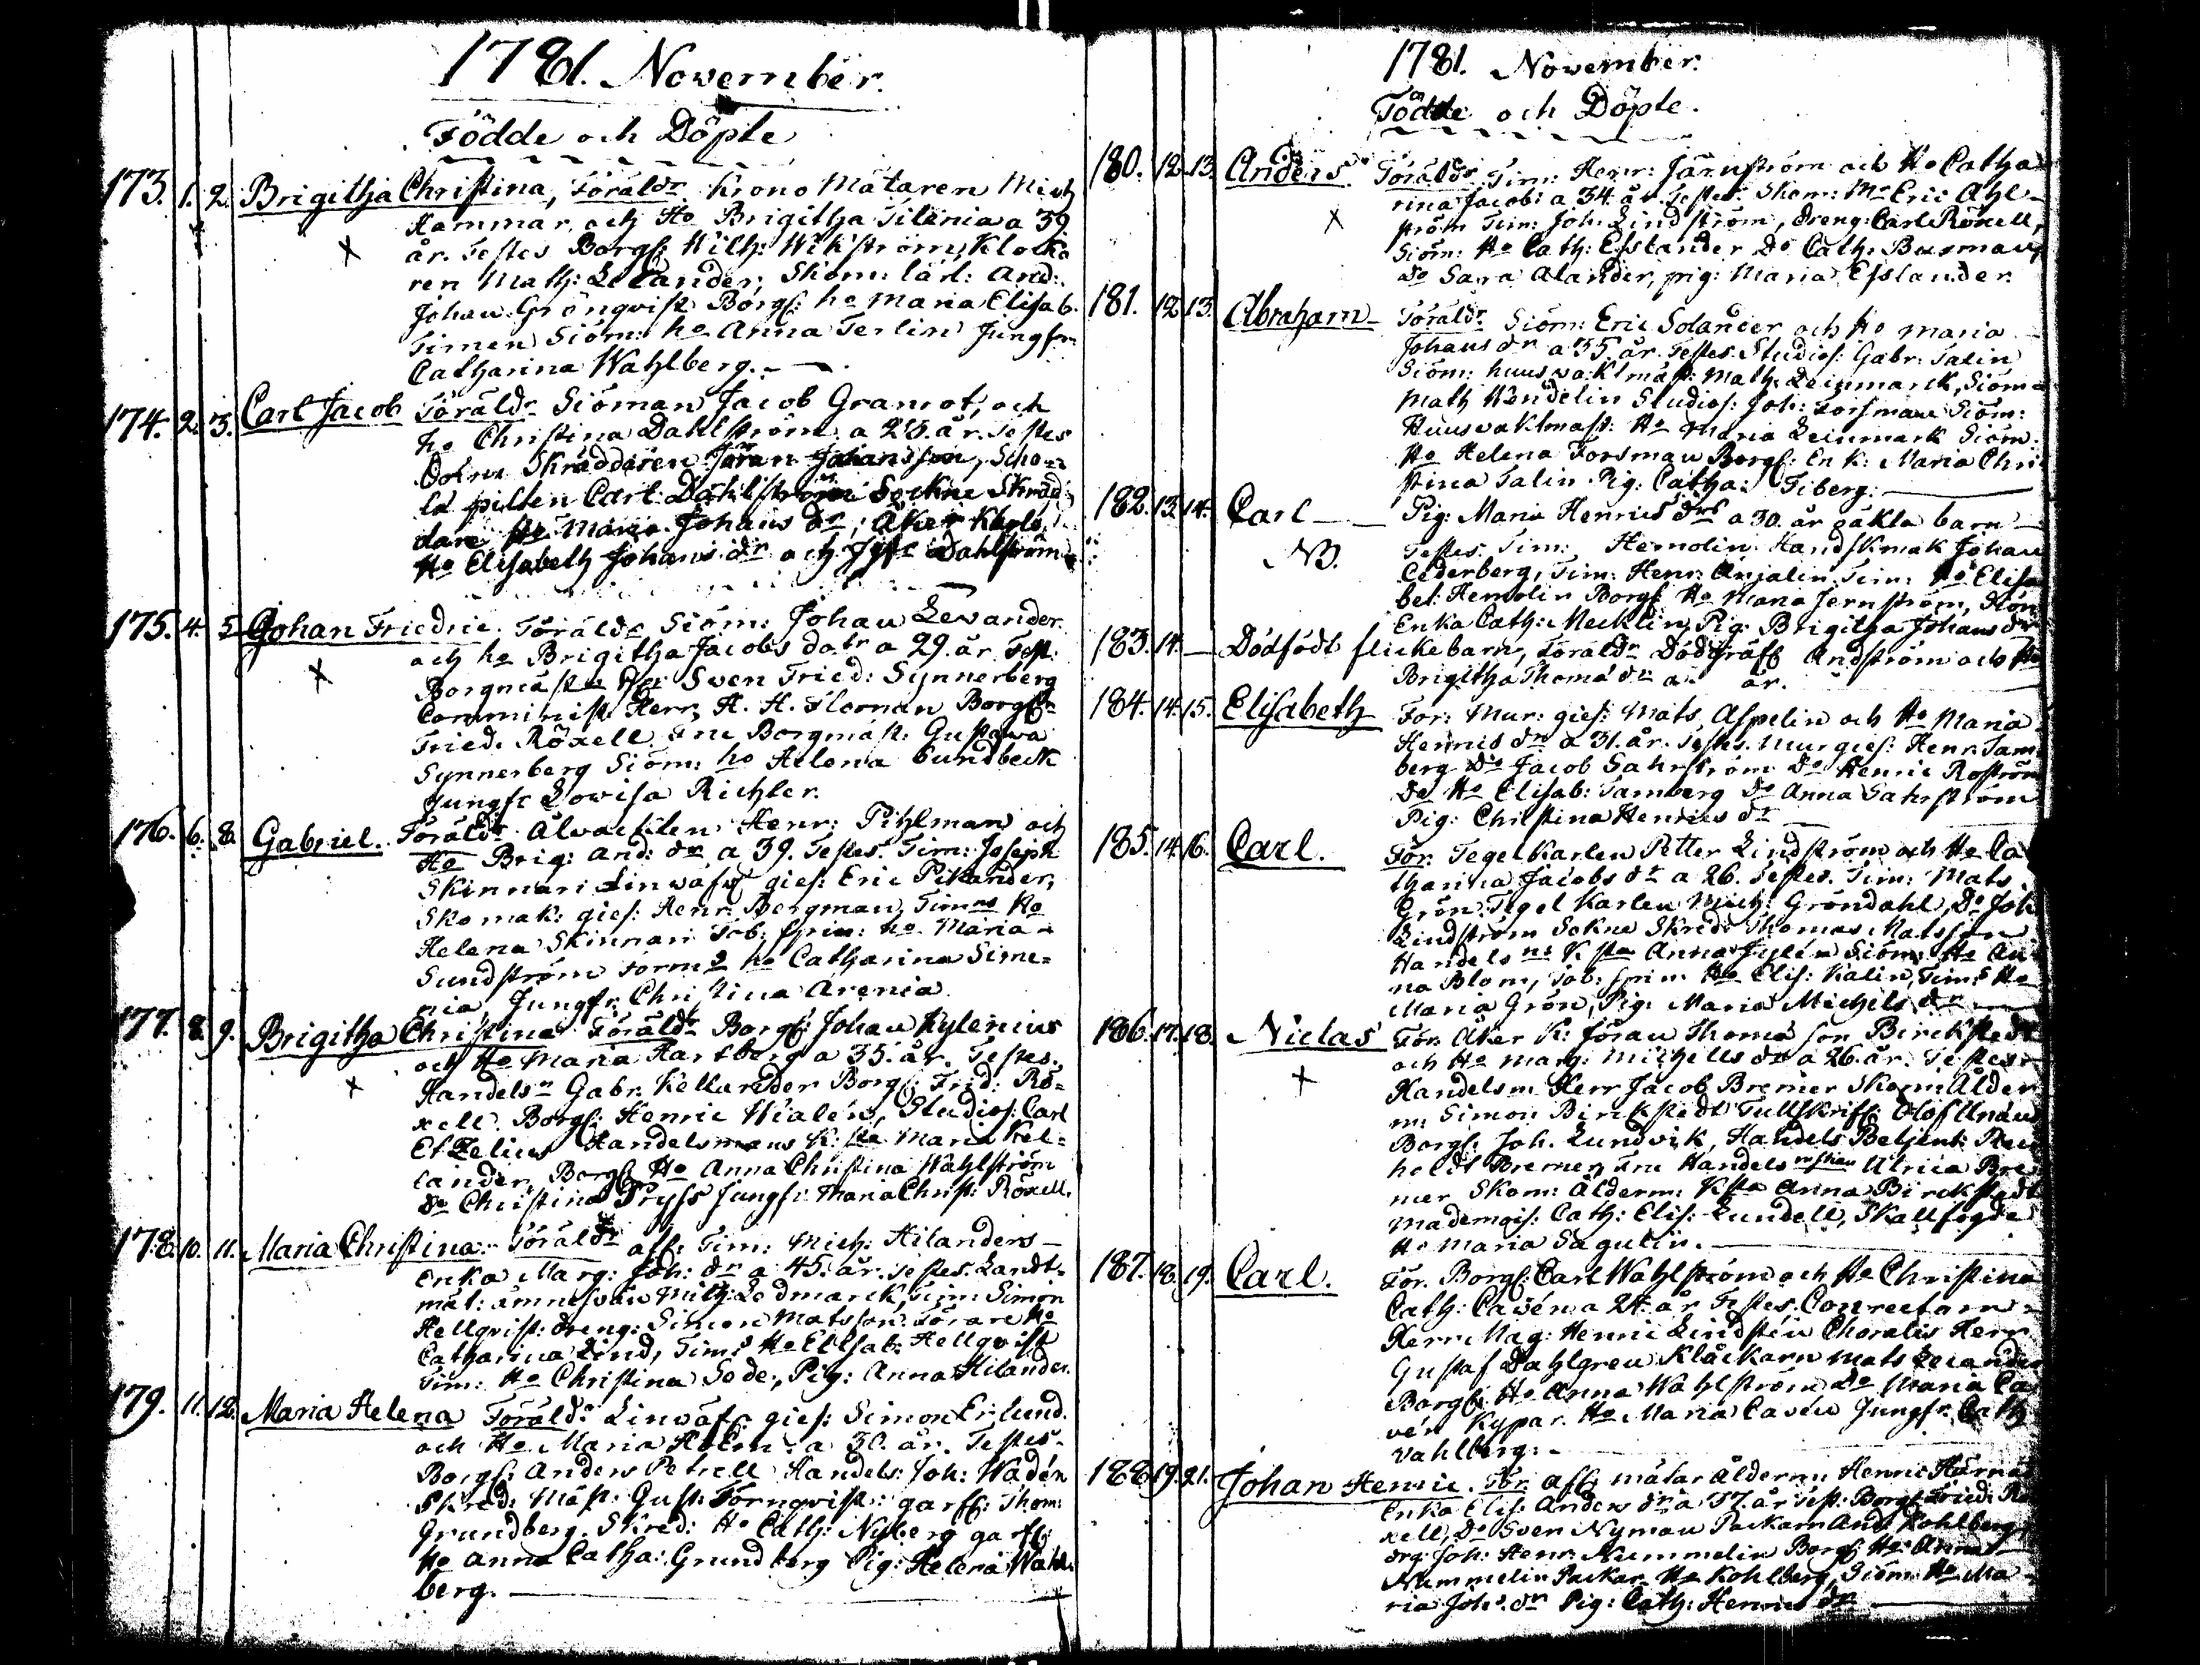 1781. November.
Födde och Döpte
173. 1. 2. Brigitha Christina, Föräldr Krono Mätaren Mich
Hammar, och Ho Brigitha Tilenia a 39
år. Testes Borgf: Wilh: Wikström, Klocka
ren Math: Lelander, Skom: lärl: And:
Johan Grönqvist Borgf: ho Maria Elisab.
Timen Siöm: ho Anna Terlin Jungfr
Catharina Wahlberg.
174. 2. 3. Carl Jacob Föräldr Siöman Jacob Gramot, och
ho Christina Dahlström a 25. år. Testes
Skräddaren Jöran Johansson, Scho=
la pilten Carl Dahlström Sockne Skräd
dare Ho Maria Johans dr, Åker Karls
Ho Elisabeth Johans dr och Dahlström
175. 4. 5 Johan Friedric. Föräldr Siöm: Johan Levander
och ho Brigitha Jacobs dotr a 29. år. Test:
Borgmäst Her Sven Fried: Synnerberg
Comminist. Herr H. H. Floman Borgf
Fried. Röxell. Fru Borgmäst: Gustawa
Synnerberg Siöm: ho Helena Sundbeck
Jungfr Lovisa Richter.
176. 6. 8. Gabriel. Föräldr Älvackten Henr: Pihlman och
Ho Brig: And: dr a 39. Testes. Tim: Joseph
Skinnari Linwäfv gies: Eric Pikander,
Sko mak: gies: Henr. Bergman, Timns Ho
Helena Skinnari Tob: Spin: ho Maria
Sundström ho Catharina Sime=
nia, Jungfr Christina Arenia
177. 8. 9. Brigitha Christina Föräldr Borgf: Johan Kylenius
och Ho Maria Hartberg a 35. år. Testes.
Handelsn Gabr. Kellander Borgf: Frid: Rö=
xell. Borgf: Henric Wialén, Studios: Carl
Etzelius Handelsmans K: sta Maria Kel=
lander, Borgf Ho Anna Christina Wahlström
Do Christina Pryss Jungfr. Maria Christ: Röxell.
178. 10. 11. Maria Christina: Föräldr afl: Tim: Mich: Hilanders
Enka Marg: Joh: dr a 45. år. Testes. Landt=
mät: Mich: Ledmarck, Tim: Simon
Hellqvist: dreng: Simon Matsson Förare Ho
Catharina Lind, Tims Ho Elisab: Hellqvist
Tim: Ho Christina Sode, Pig: Anna Hilander.
179. 11. 12. Maria Helena Föräldr Linwäfv gies: Simon Erlund.
och Ho Maria Holm. a 30. år. Testes
Borgf: Anders Petrell Handels: Joh: Wadén
Skred: Mäst: Gust: Törnqvist: garff: Thom:
Grundberg. Skred: Ho Cath: Nyberg garff:
Ho Anna Catha: Grundberg Pig: Helena Wahl
berg.
1781. November.
Födde och Döpte.
180. 12 13. Anders. Föräldr Tim: Henr: Järnström och Ho Catha
rina Jacob: a 34. år. Testes. Skom: Mr Eric Ahl=
ström Tim: Joh. Lindström, dreng: Carl Röxell,
Siöm: Ho Cath: Esslander Do Cath: Busman
Do Sara Alander, pig: Maria Esslander.
181. 12 13. Abraham Föräldr Siöm: Eric Solander och Ho Maria
Johans dr a 35. år. Testes. Studios: Gabr: Talin
Siöm: huus waktmäst: Math. Leinmarck, Siöm=
Math Wendelin Studios: Joh: Forsman Siöm:
Huuswaktmäst: Ho Maria Leinmark Siöm:
Ho Helena Forsman Borgf: En k: Maria Chri
stina Talin. Pig: Catha: Tiberg:
182. 13. 14. Carl Pig: Maria Henrics drs a 30. år oäkta barn
NB. Testes. Tim: Hemolin. Handskmak Johan
Cederberg, Tim: Henr: Anjalin Tim: Ho Elisa
bet: Hemolin Borgf Ho Maria Jernström, Siöm
Enka Cath: Mecklin, Pig: Brigitha Johans dr
183. 14. Dödfödt flickebarn, Föräldr Dödgräf Andström och Ho
Brigitha Thoma dr a år.
184. 14. 15. Elisabeth För: Mur: gies: Mats Aspelin och Ho Maria
Henrics dr a 31. år. Testes. Mur gies: Henr. Tam
berg Do Jacob Sahrström Do Henric Roström
Do Ho Elisab: Tamberg Do Anna Sahrström
Pig: Christina Henrics dr
185. 14. 16. Carl. För. Tegelkarlen Petter Lindström och Ho Ca
tharina Jacobs dr a 26. Testes. Tim: Mats
Grön. Tegel Karlen Mich: Gröndahl, Do Joh
Lindström Sokne Skred: Thomas Matsson
Handels ns K sta Anna Jylén Siöm: Ho An
na Blom, Tob: spin: Ho Elis: Kalin, Tims Ho
Maria Grön, Pig: Maria Michels dr
186. 17. 18. Niclas För. Åker K: Jöran Thomä son Birckstedt
och Ho Marg: Michells dr a 26. år. Testes
Handelsm Herr Jacob Bremer Skom Ålder
m: Simon Birckstedt Tullskrif: Olof Unæus
Borgf: Joh. Lundvik, Handels Betjent: Rein
holdt Bremer, Fru Handels mskan Ulrica Bre
mer Skom: Ålderm: Ksta Anna Birckstedt
Mademois: Cath: Elis: Lundell, Skallfogde
Ho Maria Sagulin.
187. 18. 19. Carl. För. Borgf: Carl Wahlström och Ho Christina
Cath: Cawén a 24. år Testes. Conrectorn
Herr Mag: Henric Lindstén Choralis Herr
Gustaf Dahlgren Klåckarn Mats Lelander
Borgf: Ho Anna Wahlström Do Maria Ca
vén Kypar. Ho Maria Cavén Jungfr. Cath
Vahlberg.
188. 19. 21. Johan Henric. För afl: mätar Ålderm: Henric
Enka Elis: Anders dr a 37. år Test: Borgf. Fried: Rö
xell, Do Sven Nyman Packarn And: Kohlberg
drg: Joh: Henr. Nummelin Borgf: Ho Anna
Nummelin Packar Ho Kohlberg, Siöm: Ho Ma
ria Johs. dr Pig: Cath: Henrics dr